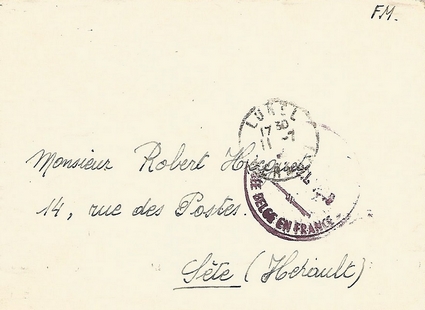 FM.
LUNEL
17 30
11 -7
Monsieur Robert
14, rue des Postes.
BELGE EN FRANCE
Sète (Hérault)